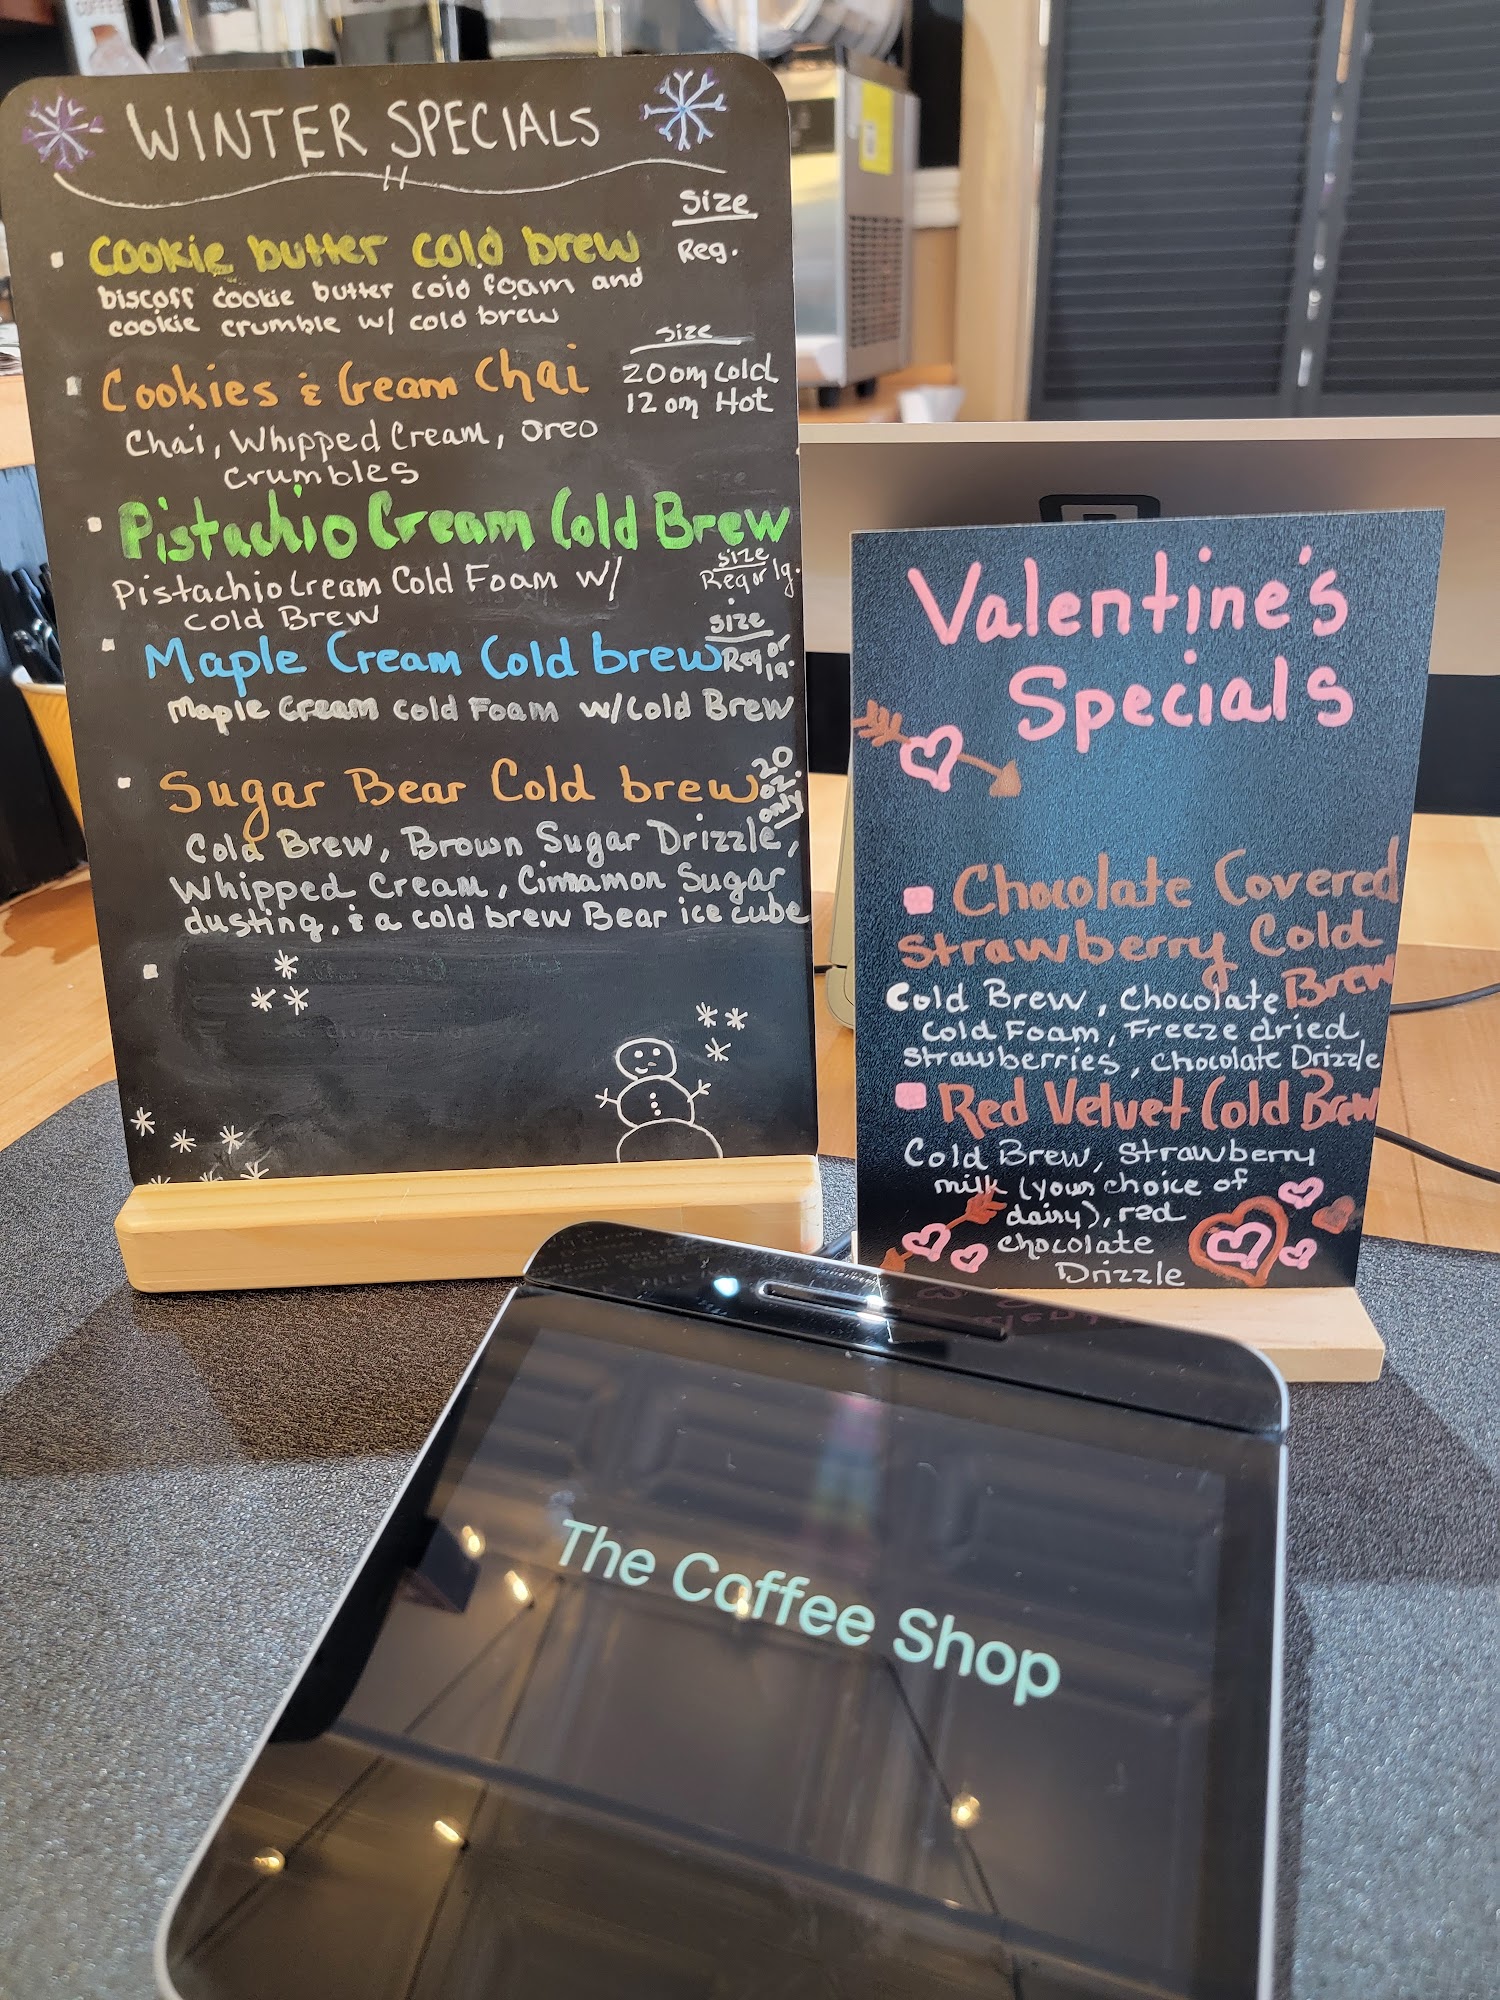 COFFEE
WINTER SPECIALS
Size
Cookie butter cold brew
Reg.
biscoff cookie butter cold foam and
cookie crumble w/ cold brew
Size
Cookies & Cream Chai
20 oz Cold
12 oz Hot
Chai, Whipped Cream, oreo
crumbles
Pistachio Cream Cold Brew
Size
Pistachio Cream Cold Foam w/
Reg or lg.
cold Brew
Size
Maple Cream Cold brew
Reg or
lg.
Maple Cream cold Foam w/cold Brew
Sugar Bear Cold brew
20
oz.
only
Cold Brew, Brown Sugar Drizzle,
Whipped Cream, Cinnamon Sugar
dusting, & a cold brew Bear ice cube
Valentine's
Specials
Chocolate Covered
Strawberry Cold
Brew
Cold Brew, Chocolate
Cold Foam, Freeze dried
strawberries, Chocolate Drizzle
Red Velvet Cold Brew
Cold Brew, Strawberry
milk (your choice of
dairy), red
chocolate
Drizzle
The Coffee Shop